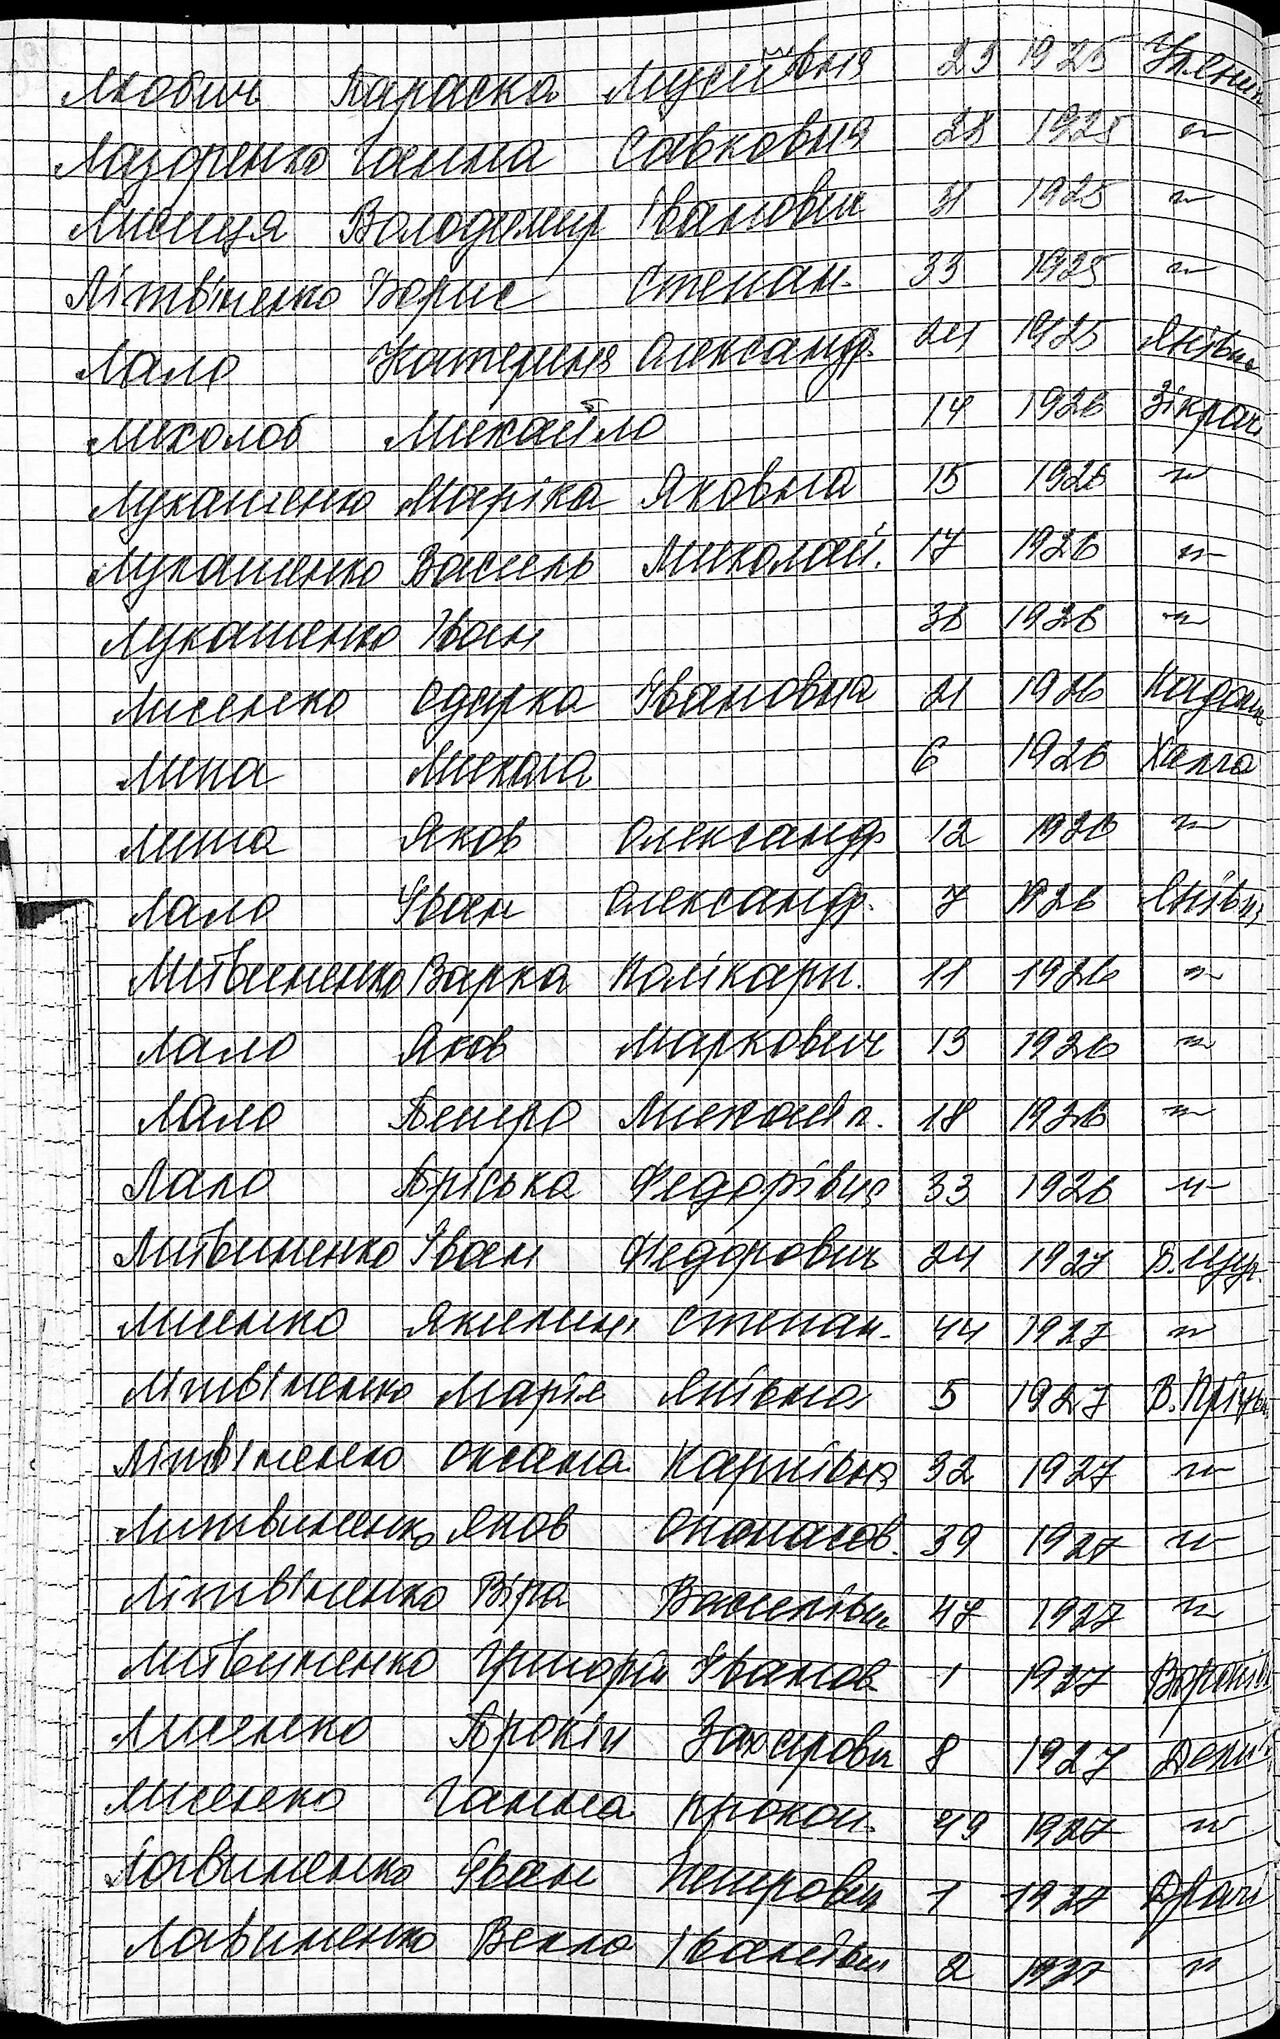 Любич Параска Мусіївна 23 1925 Уляник
Лазаренко Ганна Савковна 28 1925 -"-
Лисиця Володимир Іванович 31 1925 -"-
Літвіненко Борис Степан. 33 1925 -"-
Лало Катерина Олександр. 24 1925 Янівка
Лихолоб Михайло 14 1926 Зікрач
Лукашенко Маріка Яковна 15 1926 -"-
Лукашенко Василь Миколай. 17 1926 -"-
Лукашенко Іван 36 1926 -"-
Лисенко Одарка Івановна 21 1926 Кадом
Липа Микола 6 1926
Липа Яков Олександр 12 1926 -"-
Лало Іван Олександр. 7 1926 Янівк
Литвиненко Варка Полікарп. 11 1926 -"-
Лало Яков Маркович 13 1926 -"-
Лало Петро Михайл. 18 1926 -"-
Лало Пріська Федорівна 33 1926 -"-
Литвиненко Іван Федорович 24 1927 В.Цур.
Лисенко Якилина Степан. 44 1927 -"-
Літвіненко Марія Янівна 5 1927 В.Пріцьк
Літвіненко Оксана Карпівна 32 1927 -"-
Литвиненко Яков Опанасов. 39 1927 -"-
Літвіненко Віра Василівн 47 1927 -"-
Литвиненко Григорій Іванов. 1 1927
Лисенко Прокіп Захарови 8 1927
Лисенко Ганна Прокоп. 49 1927 -"-
Лавиненко Іван Петрович 1 1927 Драчі
Лавиненко Векла Іванівн 2 1927 -"-